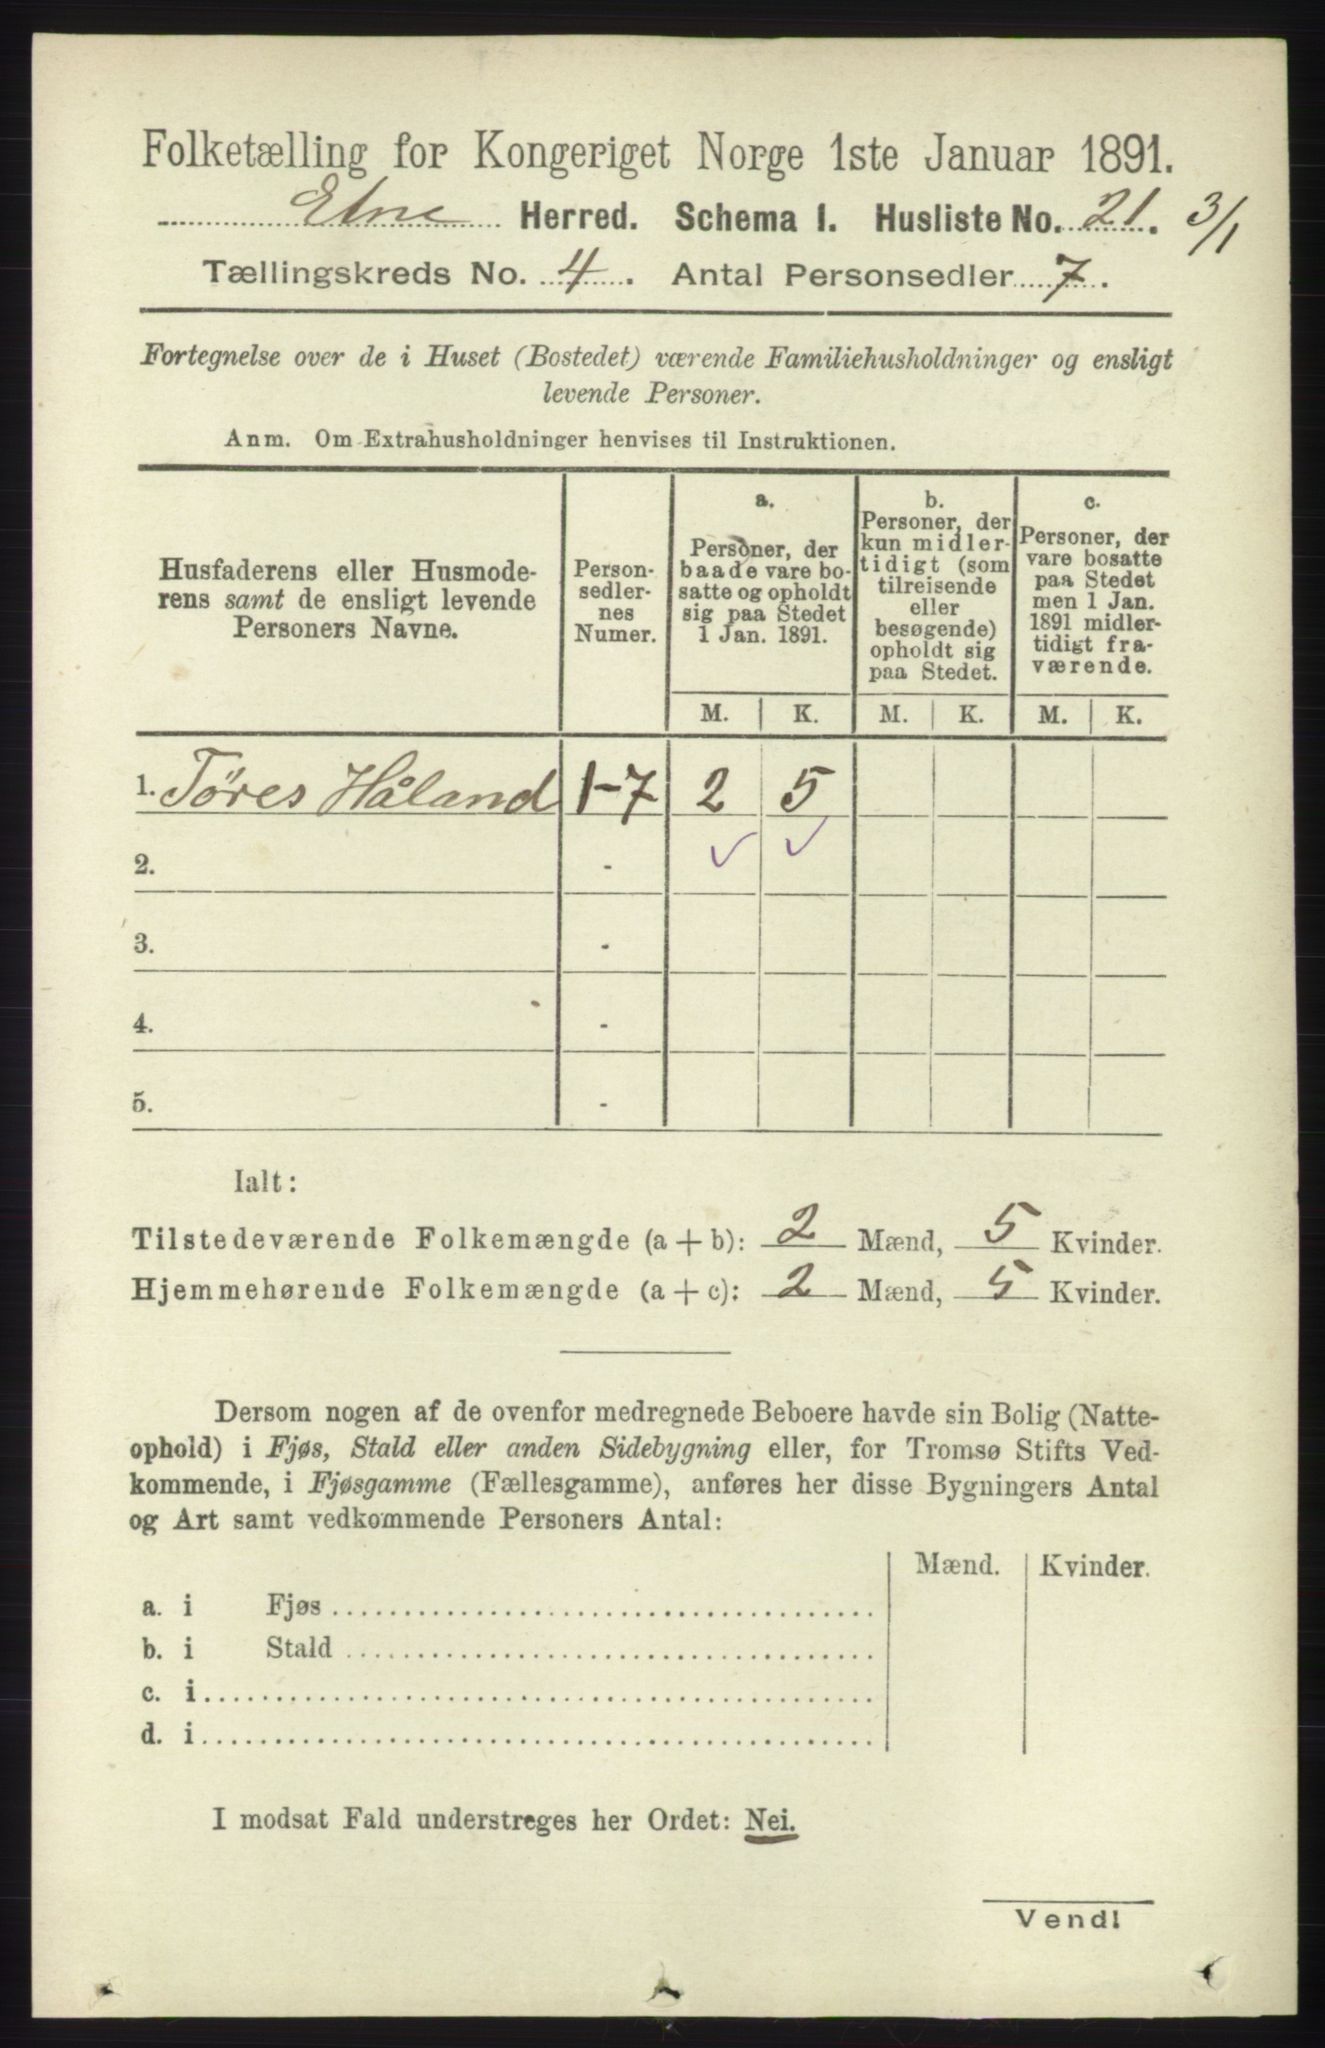 Folketælling for Kongeriget Norge 1ste Januar 1891.
Etne Herred. Schema I. Husliste No. 21. 3/1
Tællingskreds No. 4. Antal Personsedler 7.
Fortegnelse over de i Huset (Bostedet) værende Familiehusholdninger og ensligt
levende Personer.
Anm. Om Extrahusholdninger henvises til Instruktionen.
Husfaderens eller Husmode-
rens samt de ensligt levende
Personers Navne.
Person-
sedler-
nes
Numer.
a.
Personer, der
baade vare bo-
satte og opholdt
sig paa Stedet
1 Jan. 1891.
b.
Personer, der
kun midler-
tidigt (som
tilreisende
eller
besøgende)
opholdt sig
paa Stedet.
c.
Personer, der
vare bosatte
paa Stedet
men 1 Jan.
1891 midler-
tidigt fra-
værende.
M. K. M. K. M. K.
1. Tøres Håland 1-7 2 5
2. -
3. -
4. -
5. -
Ialt:
Tilstedeværende Folkemængde (a + b): 2 Mænd, 5 Kvinder.
Hjemmehørende Folkemængde (a + c): 2 Mænd, 5 Kvinder.
Dersom nogen af de ovenfor medregnede Beboere havde sin Bolig (Natte-
ophold) i Fjøs, Stald eller anden Sidebygning eller, for Tromsø Stifts Ved-
kommende, i Fjøsgamme (Fællesgamme), anføres her disse Bygningers Antal
og Art samt vedkommende Personers Antal:
Mænd. Kvinder.
a. i Fjøs
b. i Stald
c. i
d. i
I modsat Fald understreges her Ordet: Nei.
Vend!